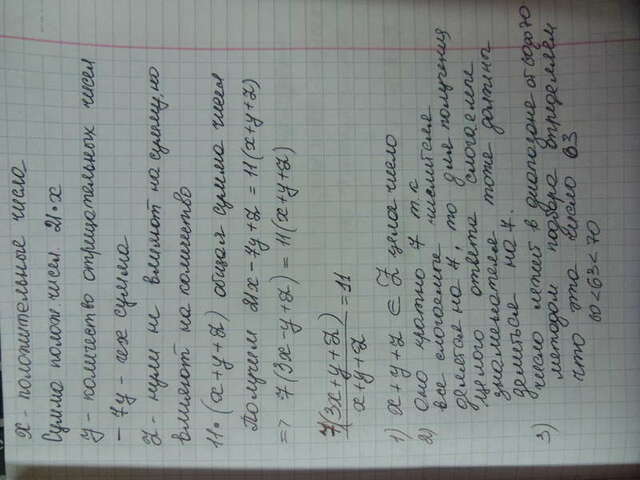 x - положительные числа
Сумма полож. чисел. 21·x
y - количество отрицательных чисел
- 7y - чех сумма
z - нули не влияют на сумму, но
влияют на количество
11·(x+y+z) общая сумма чисел
Получаем 21x - 7y + z = 11(x+y+z)
=> 7(3x-y+z) = 11(x+y+z)
7(3x+y+z)/x+y+z = 11
1) x+y+z ∈ Z целое число
2) Оно кратно 7 т.к
все слогаемые числителя
делятся на 7, то для получения
целого ответа слогаемые
знаменателя тоже должны
делиться на 7.
3) число лежит в диапазоне от 60 до 70
методом подбора определяем
что это число 63
60<63<70